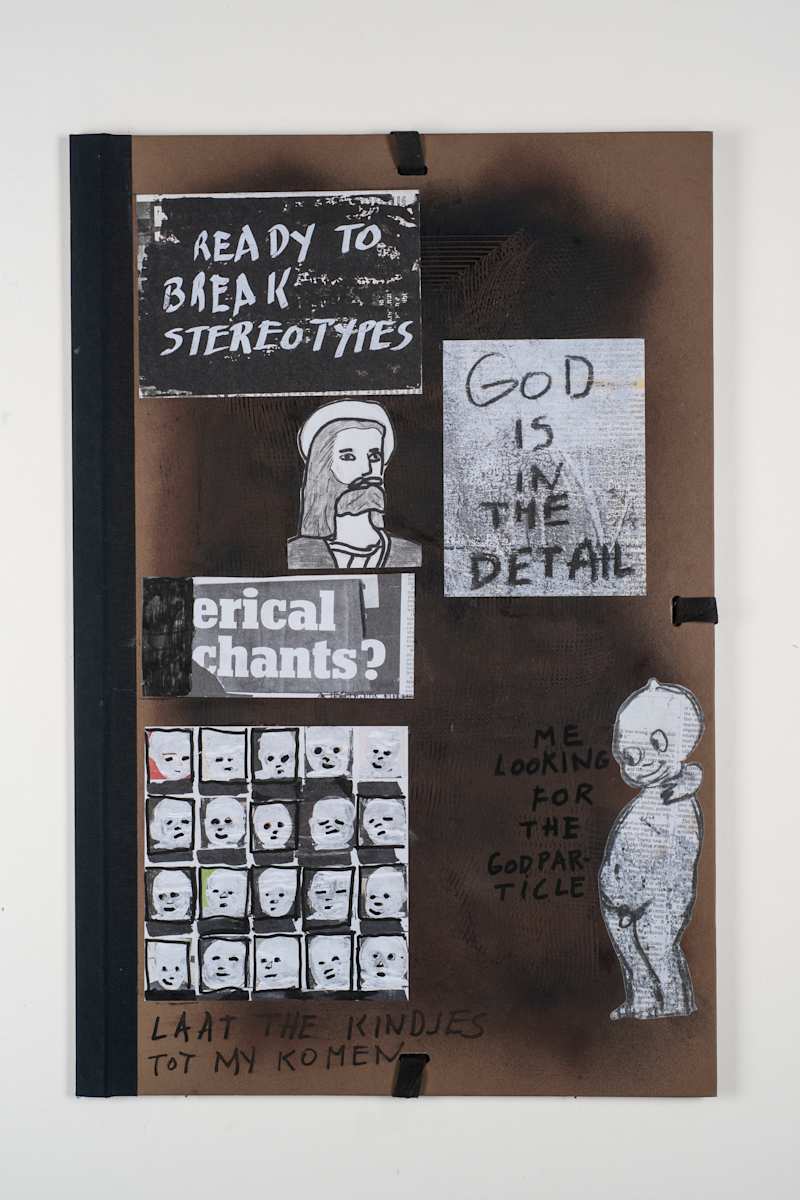 READY TO
BREAK
STEREOTYPES
GOD
IS
IN
THE
DETAIL
erical
chants?
ME
LOOKING
FOR
THE
GODPAR-
TICLE
LAAT THE KINDJES
TOT MY KOMEN